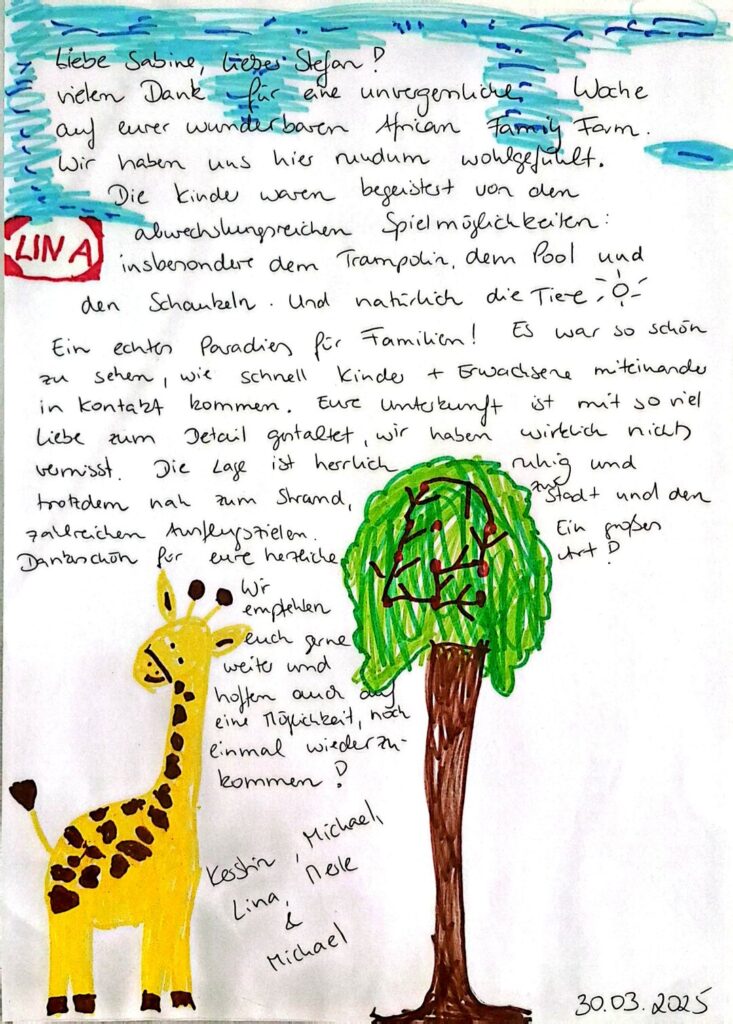 Liebe Sabine, lieber Stefan!
vielen Dank für eine unvergessliche Woche
auf eurer wunderbaren African Family Farm.
Wir haben uns hier rundum wohlgefühlt.
Die Kinder waren begeistert von den
abwechslungsreichen Spielmöglichkeiten:
LINA
insbesondere dem Trampolin, dem Pool und
den Schaukeln. Und natürlich die Tiere
Ein echtes Paradies für Familien! Es war so schön
zu sehen, wie schnell Kinder + Erwachsene miteinander
in Kontakt kommen. Eure Unterkunft ist mit so viel
Liebe zum Detail gestaltet, wir haben wirklich nichts
vermisst. Die Lage ist herrlich ruhig und
trotzdem nah zum Strand, zur Stadt und den
zahlreichen Ausflugszielen. Ein großes
Dankeschön für eure herzliche Art!
Wir
empfehlen
euch gerne
weiter und
hoffen auch auf
eine Möglichkeit, noch
einmal wiederzu-
kommen!
Kerstin, Michael,
Lina, Merle
&
Michael
30.03.2025